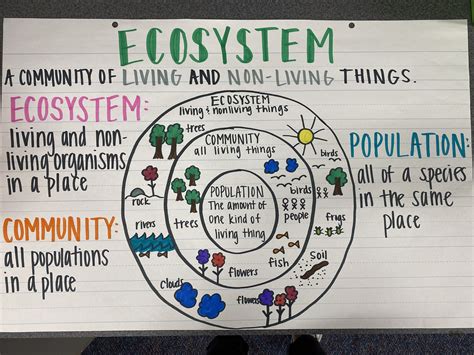 ECOSYSTEM
A COMMUNITY OF LIVING AND NON-LIVING THINGS.
ECOSYSTEM:
living and non-
living organisms
in a place
COMMUNITY:
all populations
in a place
ECOSYSTEM
living & nonliving things
trees
COMMUNITY
all living things
birds
rock
POPULATION
The amount of
one kind of
living thing
birds
people
frogs
rivers
trees
flowers
fish
soil
clouds
flowers
POPULATION:
all of a species
in the same
place